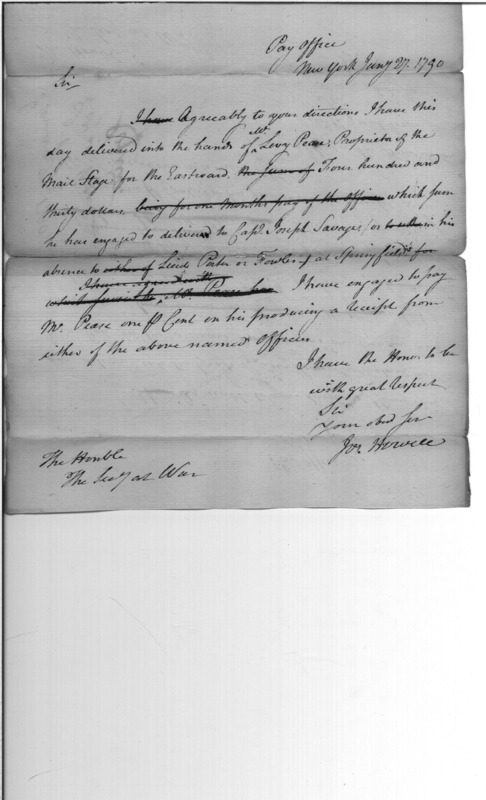 Pay Office
New York Jany 27. 1790
Sir
I have Agreeably to your directions I have this
day delivered into the hands of Mr. Levy Pease, Proprietor of the
Mail Stage for the Eastward, the sum of Four hundred and
thirty dollars, being for one Months pay of the Officers which sum
he has engaged to deliver to Capt. Joseph Savage, or in his
absence to either of Lieuts Peters or Fowler, at Springfield for
I have agreed with
which service the Mr. Pease has I have engaged to pay
Mr. Pease one P Cent on his producing a receipt from
either of the above named Officers
I have the Honor to be
with great respect
Sir
Your obed Ser
Jos. Howell
The Honble
The Secy at War